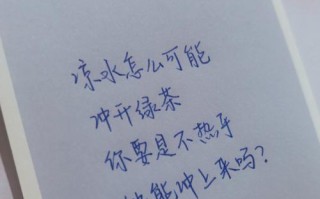 凉水怎么可能
冲开绿茶
你要是不热乎
能冲上来吗？